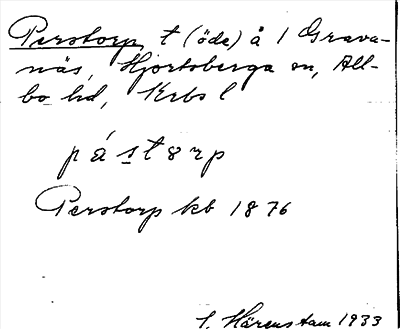 Perstorp, t (öde) å 1 Grava-
näs, Hjortsberga sn, All-
bo hd, Krbs l
pástorp
Perstorp kb 1876
S. Härenstam 1933